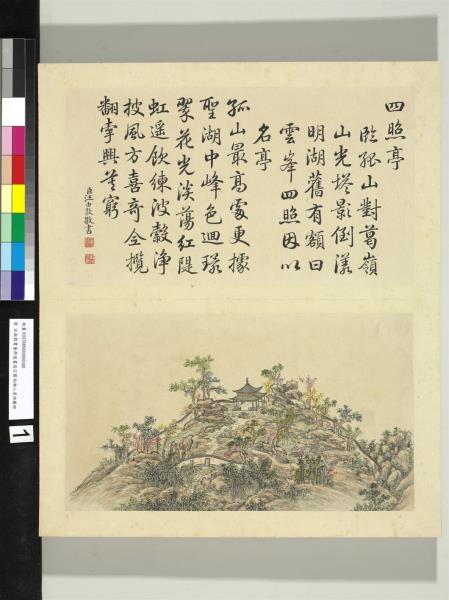 四照亭
臨孤山對葛嶺
山光塔影倒漾
明湖舊有額曰
雲峯四照因以
名亭
孤山最高處更據
聖湖中峰色迴環
翠花光淡蕩紅隄
虹遥飲練波縠淨
披風方喜奇全攬
翻牽興莫窮
臣汪由敦敬書
1